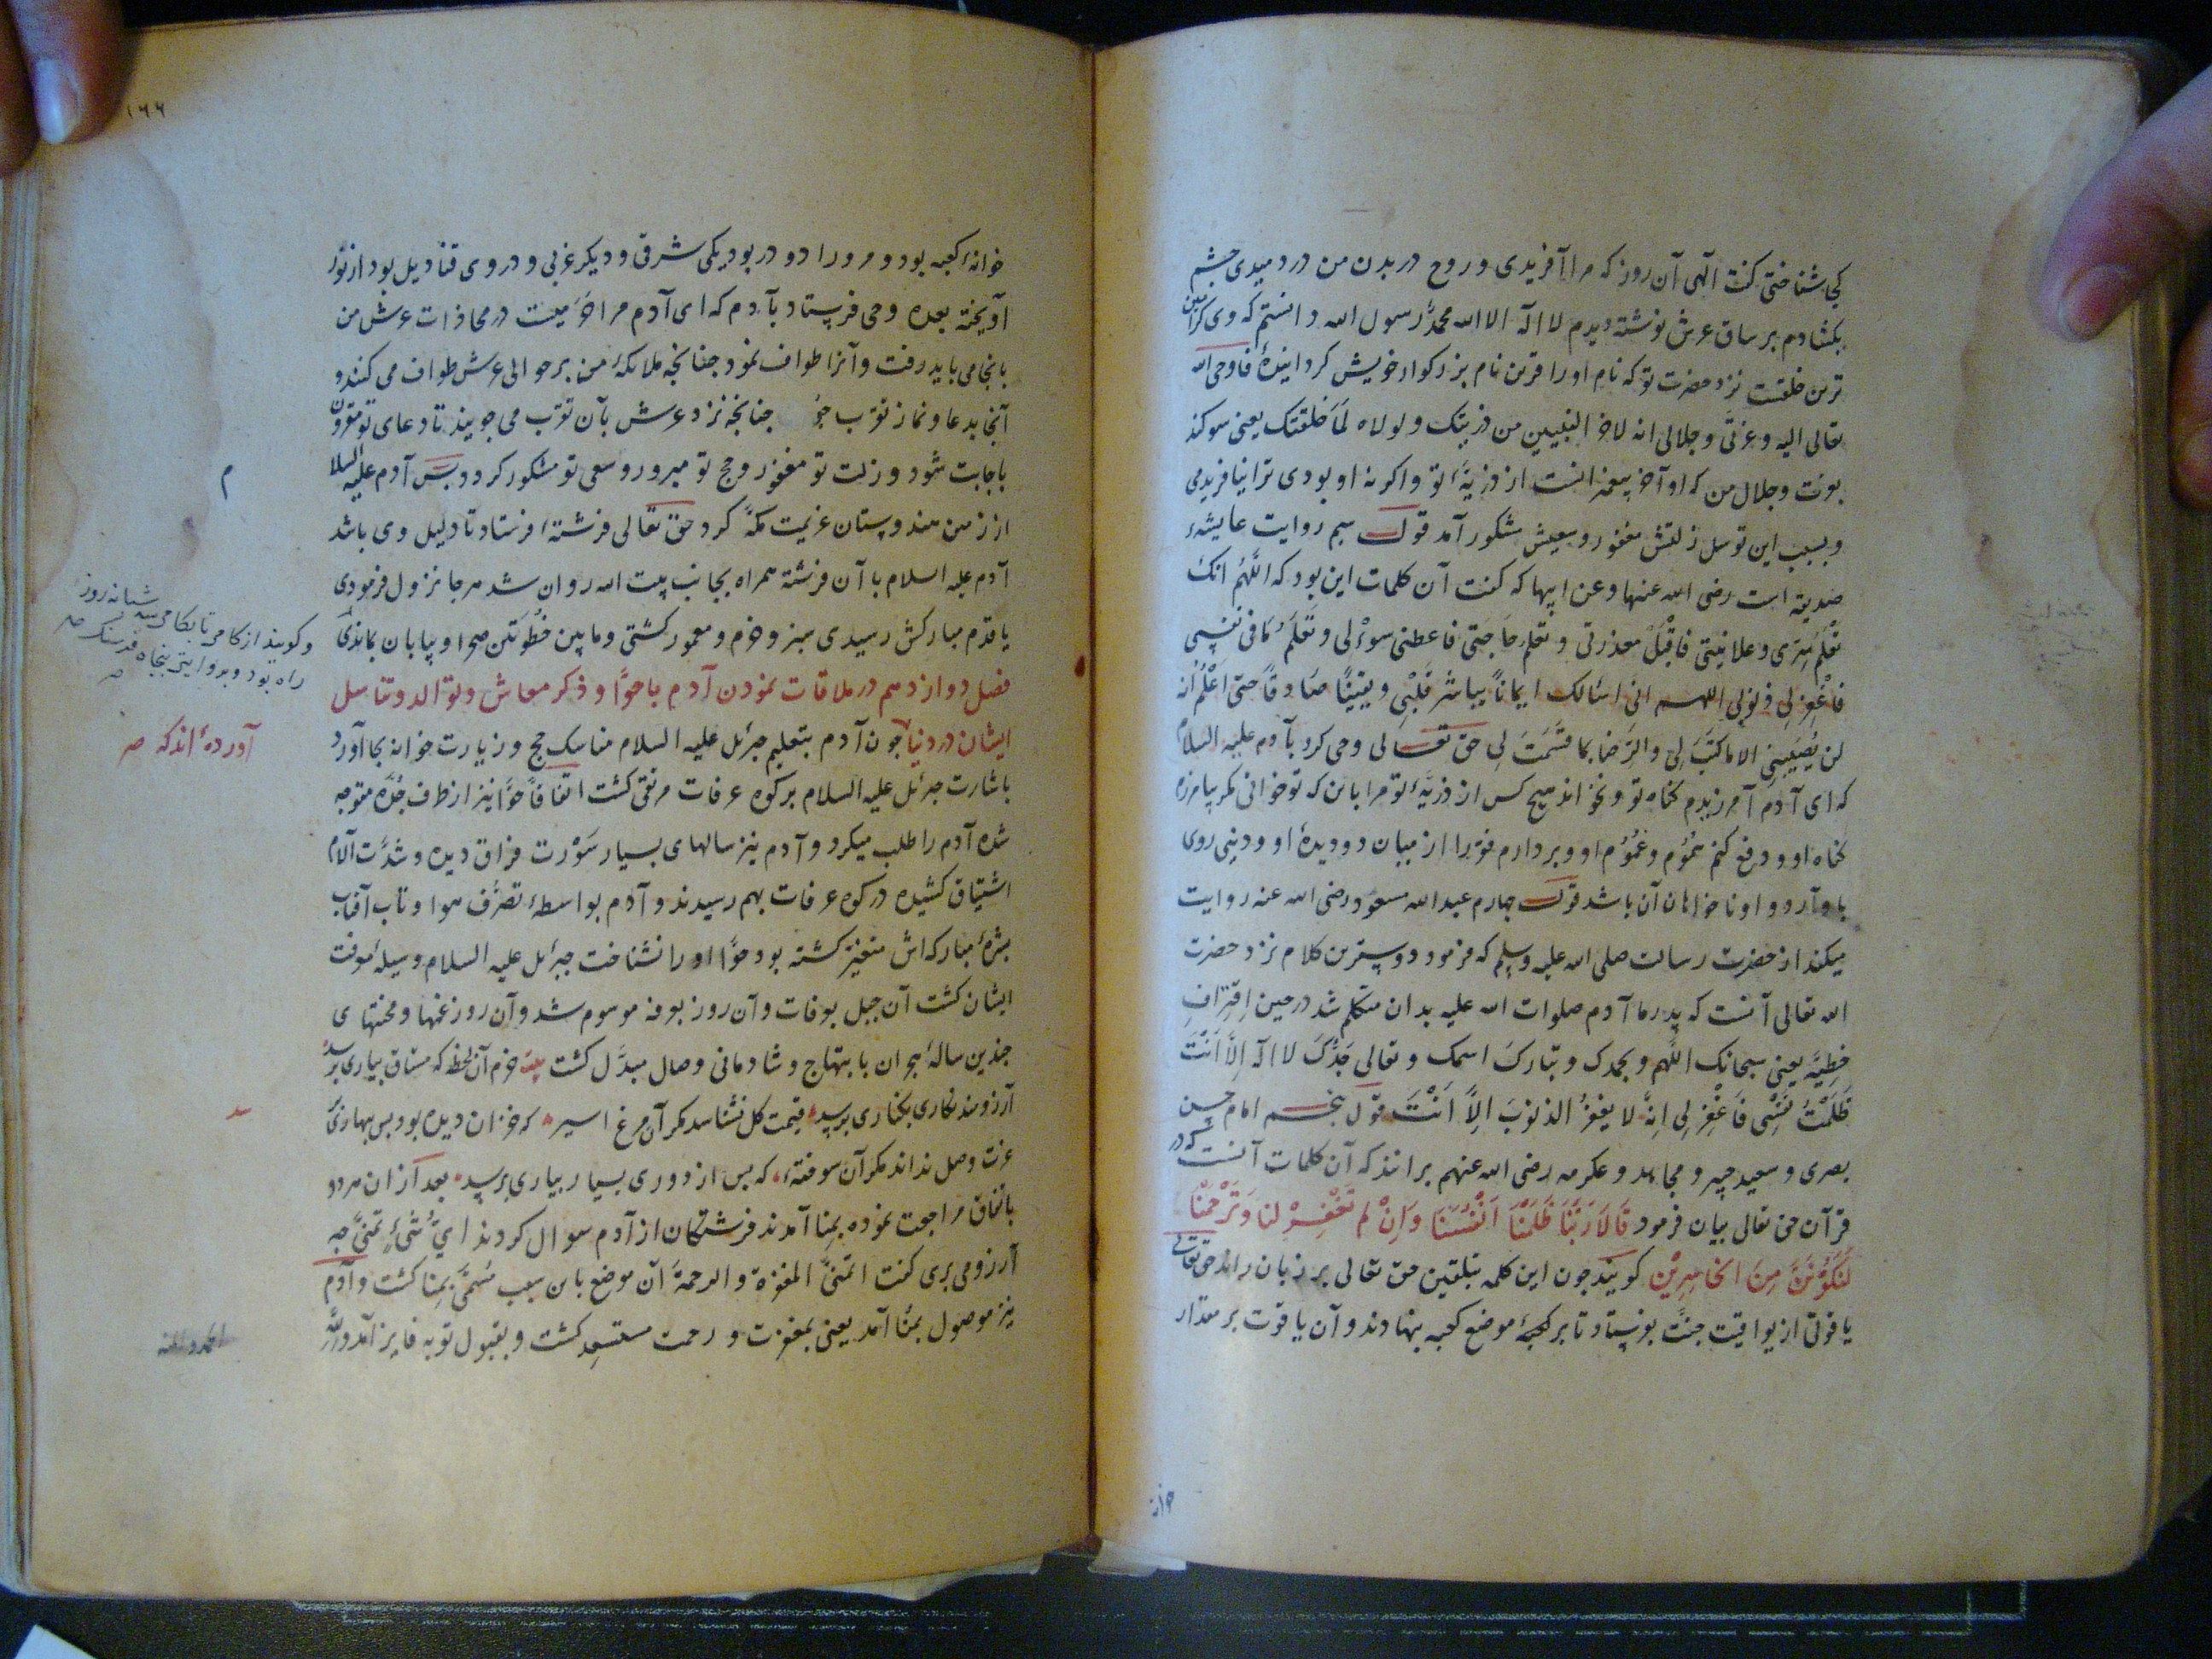 کجا شناختی گفت الهی آن روز که مرا آفریدی و روح در بدن من در دمیدی چشم
بکشادم بر ساق عرش نوشته دیدم لا اله الا الله محمد رسول الله دانستم که وی گرامین
ترین خلقست نزد حضرت تو که نام او را قرین نام بزرکوار خویش کردانیدهٔ فاوحی الله
تعالی الیه و عزتی و جلالی انه لآخر النبیین من ذریتک و لولاه لَمَا خلقتک یعنی سوکند
بعزت و جلال من که او آخر پیغمبرانست از ذریّهٔ تو و اکر نه او بودی ترا نیافریدمی
و بسبب این توسل زلتش مغفور و سعیش مشکور آمد قول سیم روایت عایشهٔ
صدیقه است رضی الله عنها و عن ابیها که گفت آن کلمات این بود که اللّهُم انک
تَعْلَمُ سِرّی و علانیتی فاقْبَلْ معذرتی و تعلم حَاجَتی فاعطنی سوءْلی و تَعْلَمُ مَا فی نفسی
فَاغْفِرْ لِی ذنوبی اللهم انی اسَالک ایمانًا یباشر قَلْبِی و یقینًا صَادقًا حتی اَعْلَمُ انه
لن یُصِیبَنِی الا ما کتَبْتَ لِی و الرّضَا بما قسَّمَتَ لِی حق تعالی وحی کرد بآدم علیه السلام
که ای آدم آمرزیدم کناه تو و نخواند هیچ کس از ذریّهٔ تو مرا باین که تو خواندی مکر بیامرزم
کناه او و دفع کنم هُمُوم و غُمُوم او و بردارم فقر را از میان دو دیدهٔ او و دنیی روی
باو آرد و او نا خواهان آن باشد قول چهارم عبد الله مسعود رضی الله عنه روایت
میکند از حضرت رسالت صلی الله علیه وسلم که فرمود دوسترین کلام نزد حضرت
الله تعالی آنست که پدر ما آدم صلوات الله علیه بدان متکلم شد در حین اِقْتِرافِ
خطِیَّه یعنی سبحانک اللّهم و بحمدک و تبارکَ اسمک و تعالی جَدُّکَ لا اله اِلاّ اَنْتَ
ظَلَمْتُ نَفْسِی فَاغْفِرْ لِی اِنهُ لا یغفرُ الذنوبَ اِلاّ اَنْتَ قول پنجم امام حسن
بصری و سعید جبیر و مجاهد و عکرمه رضی الله عنهم برانند که آن کلمات آنست که در
قرآن حق تعالی بیان فرمود قَالاَ رَبَّنَا ظَلَمْنَا اَنْفُسَنَا وَاِنْ لم تَغْفِرْ لنا وَتَرْحَمْنَا
لَنَکُوْنَنَّ مِنَ الخَاسِرِیْن کویند چون این کلمه بتلقین حق تعالی بر زبان راند حق تعالی
یاقوتی از یواقیت جنّت بفرستاد تا بر جهٔ موضع کعبه بنهادند و آن یاقوت بر مقدار
١٦٦
خوانهٔ کعبه بود و مرو را دو در بود یکی شرقی و دیکر غربی و در وی قنادیل بود از نور
آویخته بعده وحی فرستاد بآدم که ای آدم مرا خانه ایست در محاذات عرش من
بانجا می باید رفت و آنرا طواف نمود چنانچه ملائکهٔ من بر حوالی عرش طواف می کنند و
آنجا بدعا و نماز تقرب جو چنانچه نزد عرش بآن تقرب می جویند تا دعای تو مقرون
باجابت شود و زلت تو مغفور و حج تو مبرور و سعی تو مشکور کردد پس آدم علیه السلا
م
از زمین هندوستان عزیمت مکّه کرد حق تعالی فرشتهٔ فرستاد تا دلیل وی باشد
آدم علیه السلام با آن فرشته همراه بجانب بیت الله روان شد هرجا نزول فرمودی
یا قدم مبارکش رسیدی سبز و خرم و معمور کشتی و ما بین خُطْوَتَین صحرا و بیابان بماندی
و کویند از کامی تا بکامی سه شبانه روز
راه بود و بروایتی پنجاه فرسنک صح
فصل دوازدهم در ملاقات نمودن آدم با حوّا و ذکر معاش و توالد و تناسل
ایشان در دنیا چون آدم بتعلیم جبرئل علیه السلام مناسک حج و زیارت خوانه بجا آورد
آورده اند که صح
باشارت جبرئل علیه السلام بر کوه عرفات مرتقی کشت اتفاقًا حوّا نیز از طرف جُدّه متوجه
شده آدم را طلب میکرد و آدم نیز سالهای بسیار سَوْرت فراق دیده و شدّت آلام
اشتیاق کشیده در کوه عرفات بهم رسیدند و آدم بواسطهٔ تصرّف هوا و تاب آفتاب
بشرهٔ مبارکه اش متغیر کشته بود حوّا او را نشناخت جبرئل علیه السلام وسیلهٔ معرفت
ایشان کشت آن جبل بعرفات و آن روز بعرفه موسوم شد و آن روز غمها و محنتهای
چندین سالهٔ هجران بابتهاج و شادمانی وصال مبدّل کشت بیت خرم آن لحظه که مشتاق بیاری برسد
آرزومند نکاری بنکاری برسد قیمت کل نشناسد مکر آن مرغ اسیر که خزان دیده بود پس بهاری
عزت وصل نداند مکر آن سوخته که پس از دوری بسیار بیاری برسد بعد از ان هر دو
باتفاق مراجعت نموده بمنا آمدند فرشتکان از آدم سوال کردند ایّ شیءٍ تمنّی چه
آرزو می بری گفت اتمنّی المغفرة و الرحمة آن موضع باین سبب مُسَمّی بمنا کشت و آدم
نیز موصول بمنا آمد یعنی بمغفرت و رحمت مستسعد کشت و بقبول توبه فایز آمد و لله
الحمد والمنه